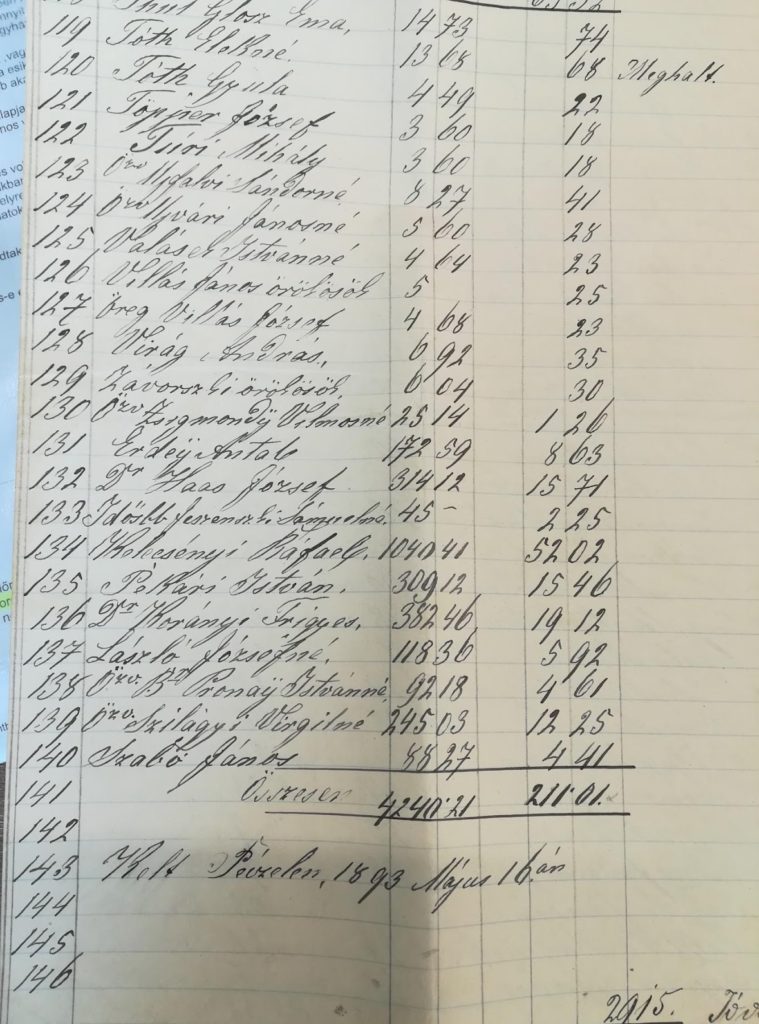 118 Glosz Ema, 14 73 74
119 Tóth Elekné. 13 68 68 Meghalt.
120 Tóth Gyula 4 49 22
121 Töpper József 3 60 18
122 Túri Mihály 3 60 18
123 Özv Ujfalvi Sándorné 8 27 41
124 Özv Ujvári Jánosné 5 60 28
125 Valásek Istvánné 4 64 23
126 Villás János örökösök 5 25
127 Öreg Villás József 4 68 23
128 Virág András, 6 92 35
129 Závorszki örökösök, 6 04 30
130 Özv. Zsigmondÿ Vilmosné 25 14 1 26
131 Erdeÿ Antal 172 59 8 63
132 Dr Haas József 314 12 15 71
133 Idősbb Jeszenszki Sámuelné. 45 - 2 25
134 Kelecsényi Ráfael. 1040 41 52 02
135 Pekári István. 309 12 15 46
136 Dr Korányi Frigyes. 382 46 19 12
137 László Józsefné. 118 36 5 92
138 Özv. Br Pronaÿ Istvánné, 92 18 4 61
139 Özv. Szilágyi Virgilné 245 03 12 25
140 Szabó János 88 27 4 41
141 Összesen 4240·21 211·01.
142
143 Kelt Péczelen, 1893 Május 16.án
144
145
146
2915.